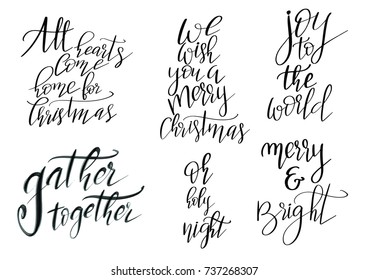 All
hearts
come
home for
Christmas
we
wish
you a
merry
Christmas
joy
to
the
world
gather
together
Oh
holy
night
merry
&
Bright
shutterstock.com · 737268307